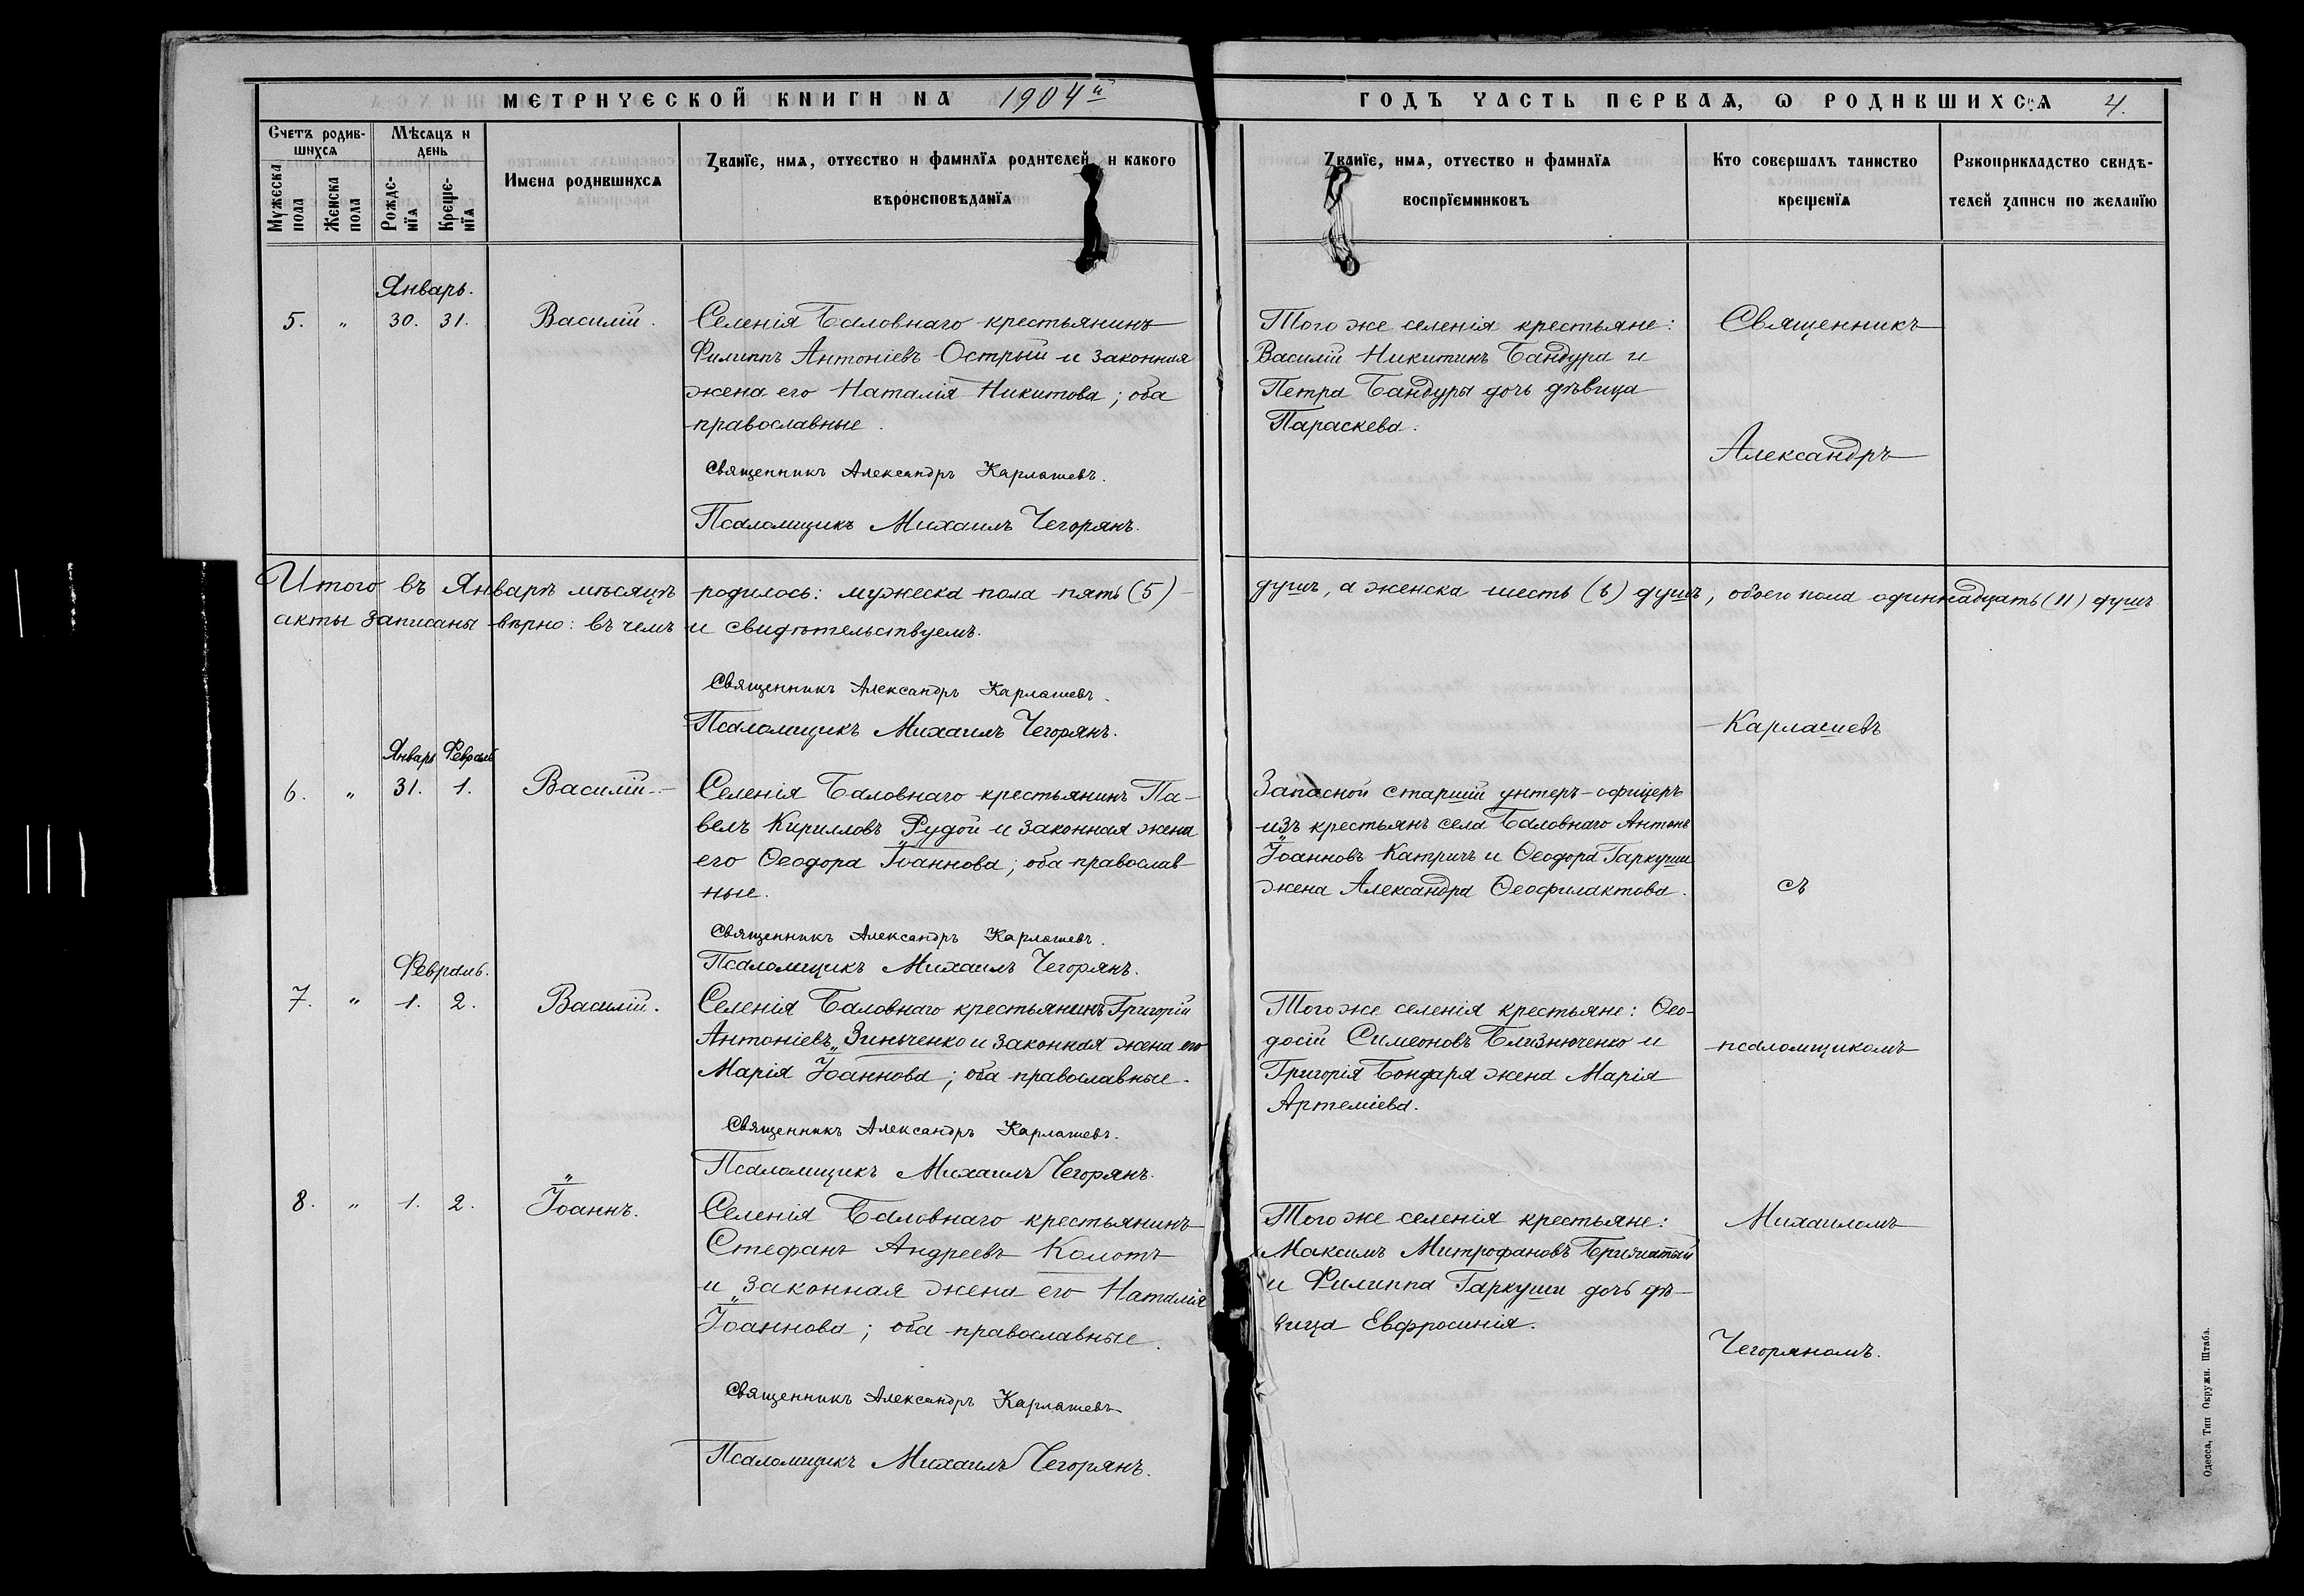 МЕТРИЧЕСКОЙ КНИГИ НА 1904й ГОДЪ ЧАСТЬ ПЕРВАѦ, Ѡ РОДИВШИХСѦ 4.
Счетъ родив-
шихсѧ
Мѣсѧцъ и
день
Мужеска
пола
Женска
пола
Рожде-
нїѧ
Креще-
нїѧ
Имена родившихсѧ
Званїе, имѧ, отчество и фамилїѧ родителей и какого
вѣроисповѣданїѧ
Званїе, имѧ, отчество и фамилїѧ
воспрїемниковъ
Кто совершалъ таинство
крещенїѧ
Рукоприкладство свидѣ-
телей записи по желанїю
Январь.
5. „ 30. 31. Василій.
Селенія Баловнаго крестьянинъ
Филиппъ Антоніевъ Острый и законная
жена его Наталія Никитова; оба
православные.
Священникъ Александръ Карлашевъ.
Псаломщикъ Михаилъ Чегорянъ.
Того же селенія крестьяне:
Василій Никитинъ Бандура и
Петра Бандуры дочь дѣвица
Параскева.
Священникъ
Александръ
Итого въ Январѣ мѣсяцѣ родилось: мужеска пола пять (5) душъ, а женска шесть (6) душъ, обоего пола одиннадцать (11) душъ
акты записаны вѣрно: въ чемъ и свидѣтельствуемъ.
Священникъ Александръ Карлашевъ.
Псаломщикъ Михаилъ Чегорянъ.
Карлашевъ
Январь Февраль
6. „ 31. 1. Василій.
Селенія Баловнаго крестьянинъ Па-
велъ Кирилловъ Рудой и законная жена
его Ѳеодора Іоаннова; оба православ-
ные.
Священникъ Александръ Карлашевъ.
Псаломщикъ Михаилъ Чегорянъ.
Запасной старшій унтеръ-офицеръ
изъ крестьянъ села Баловнаго Антонъ
Іоанновъ Катричъ и Ѳеодора Гаркуши
жена Александра Ѳеофилактова.
съ
Февраль.
7. „ 1. 2. Василій.
Селенія Баловнаго крестьянинъ Григорій
Антоніевъ Зинченко и законная жена его
Марія Іоаннова; оба православные.
Священникъ Александръ Карлашевъ.
Псаломщикъ Михаилъ Чегорянъ.
Того же селенія крестьяне: Ѳео-
досій Симеоновъ Близнюченко и
Григорія Бондаря жена Марія
Артеміева.
псаломщикомъ
8. „ 1. 2. Іоаннъ.
Селенія Баловнаго крестьянинъ
Стефанъ Андреевъ Колотъ
и законная жена его Наталія
Іоаннова; оба православные.
Священникъ Александръ Карлашевъ
Псаломщикъ Михаилъ Чегорянъ.
Того же селенія крестьяне:
Максимъ Митрофановъ
и Филиппа Гаркуши дочь дѣ-
вица Евфросинія.
Михаиломъ
Чегоряномъ.
Одесса, Тип Окружн. Штаба.